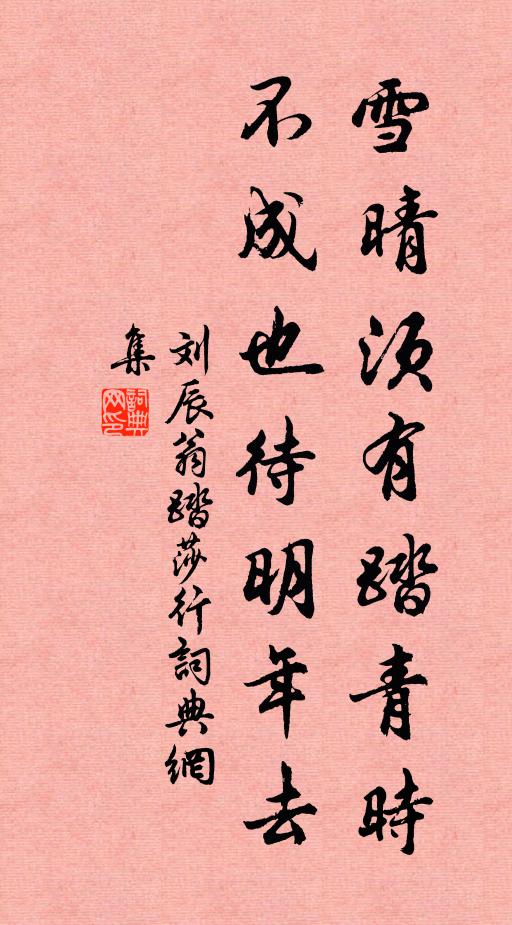 雪晴须有踏青時
不成也待明年去
刘辰翁踏莎行詞典網
集
詞典
网印